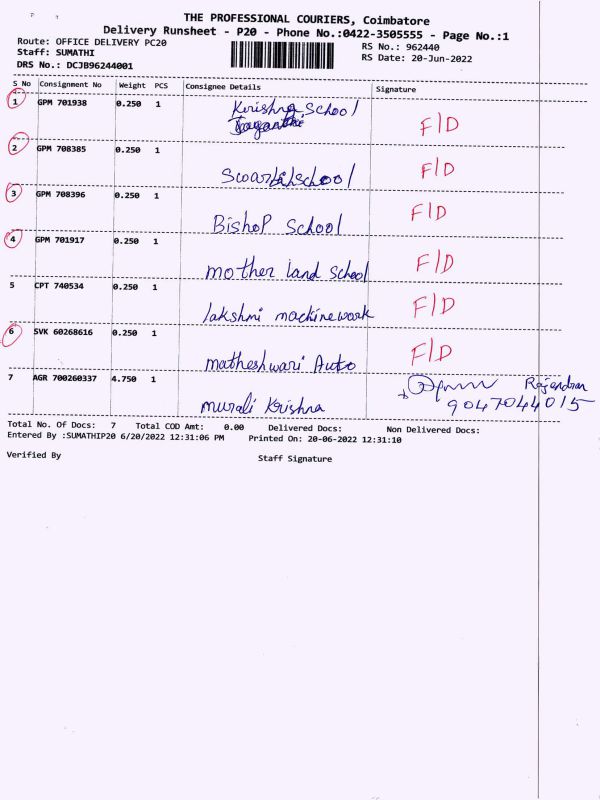 THE PROFESSIONAL COURIERS, Coimbatore
Delivery Runsheet - P20 - Phone No.:0422-3505555 - Page No.:1
Route: OFFICE DELIVERY PC20 RS No.: 962440
Staff: SUMATHI RS Date: 20-Jun-2022
DRS No.: DCJB96244001
S No Consignment No Weight PCS Consignee Details Signature
1 GPM 701938 0.250 1 Krishna School
F/D
2 GPM 708385 0.250 1
School F/D
3 GPM 708396 0.250 1
Bishop School F/D
4 GPM 701917 0.250 1
mother land School F/D
5 CPT 740534 0.250 1
lakshmi machinework F/D
6 SVK 60268616 0.250 1
matheshwari Auto F/D
7 AGR 700260337 4.750 1 Rajendran
murali Krishna 9047044015
Total No. Of Docs: 7 Total COD Amt: 0.00 Delivered Docs: Non Delivered Docs:
Entered By :SUMATHIP20 6/20/2022 12:31:06 PM Printed On: 20-06-2022 12:31:10
Verified By Staff Signature